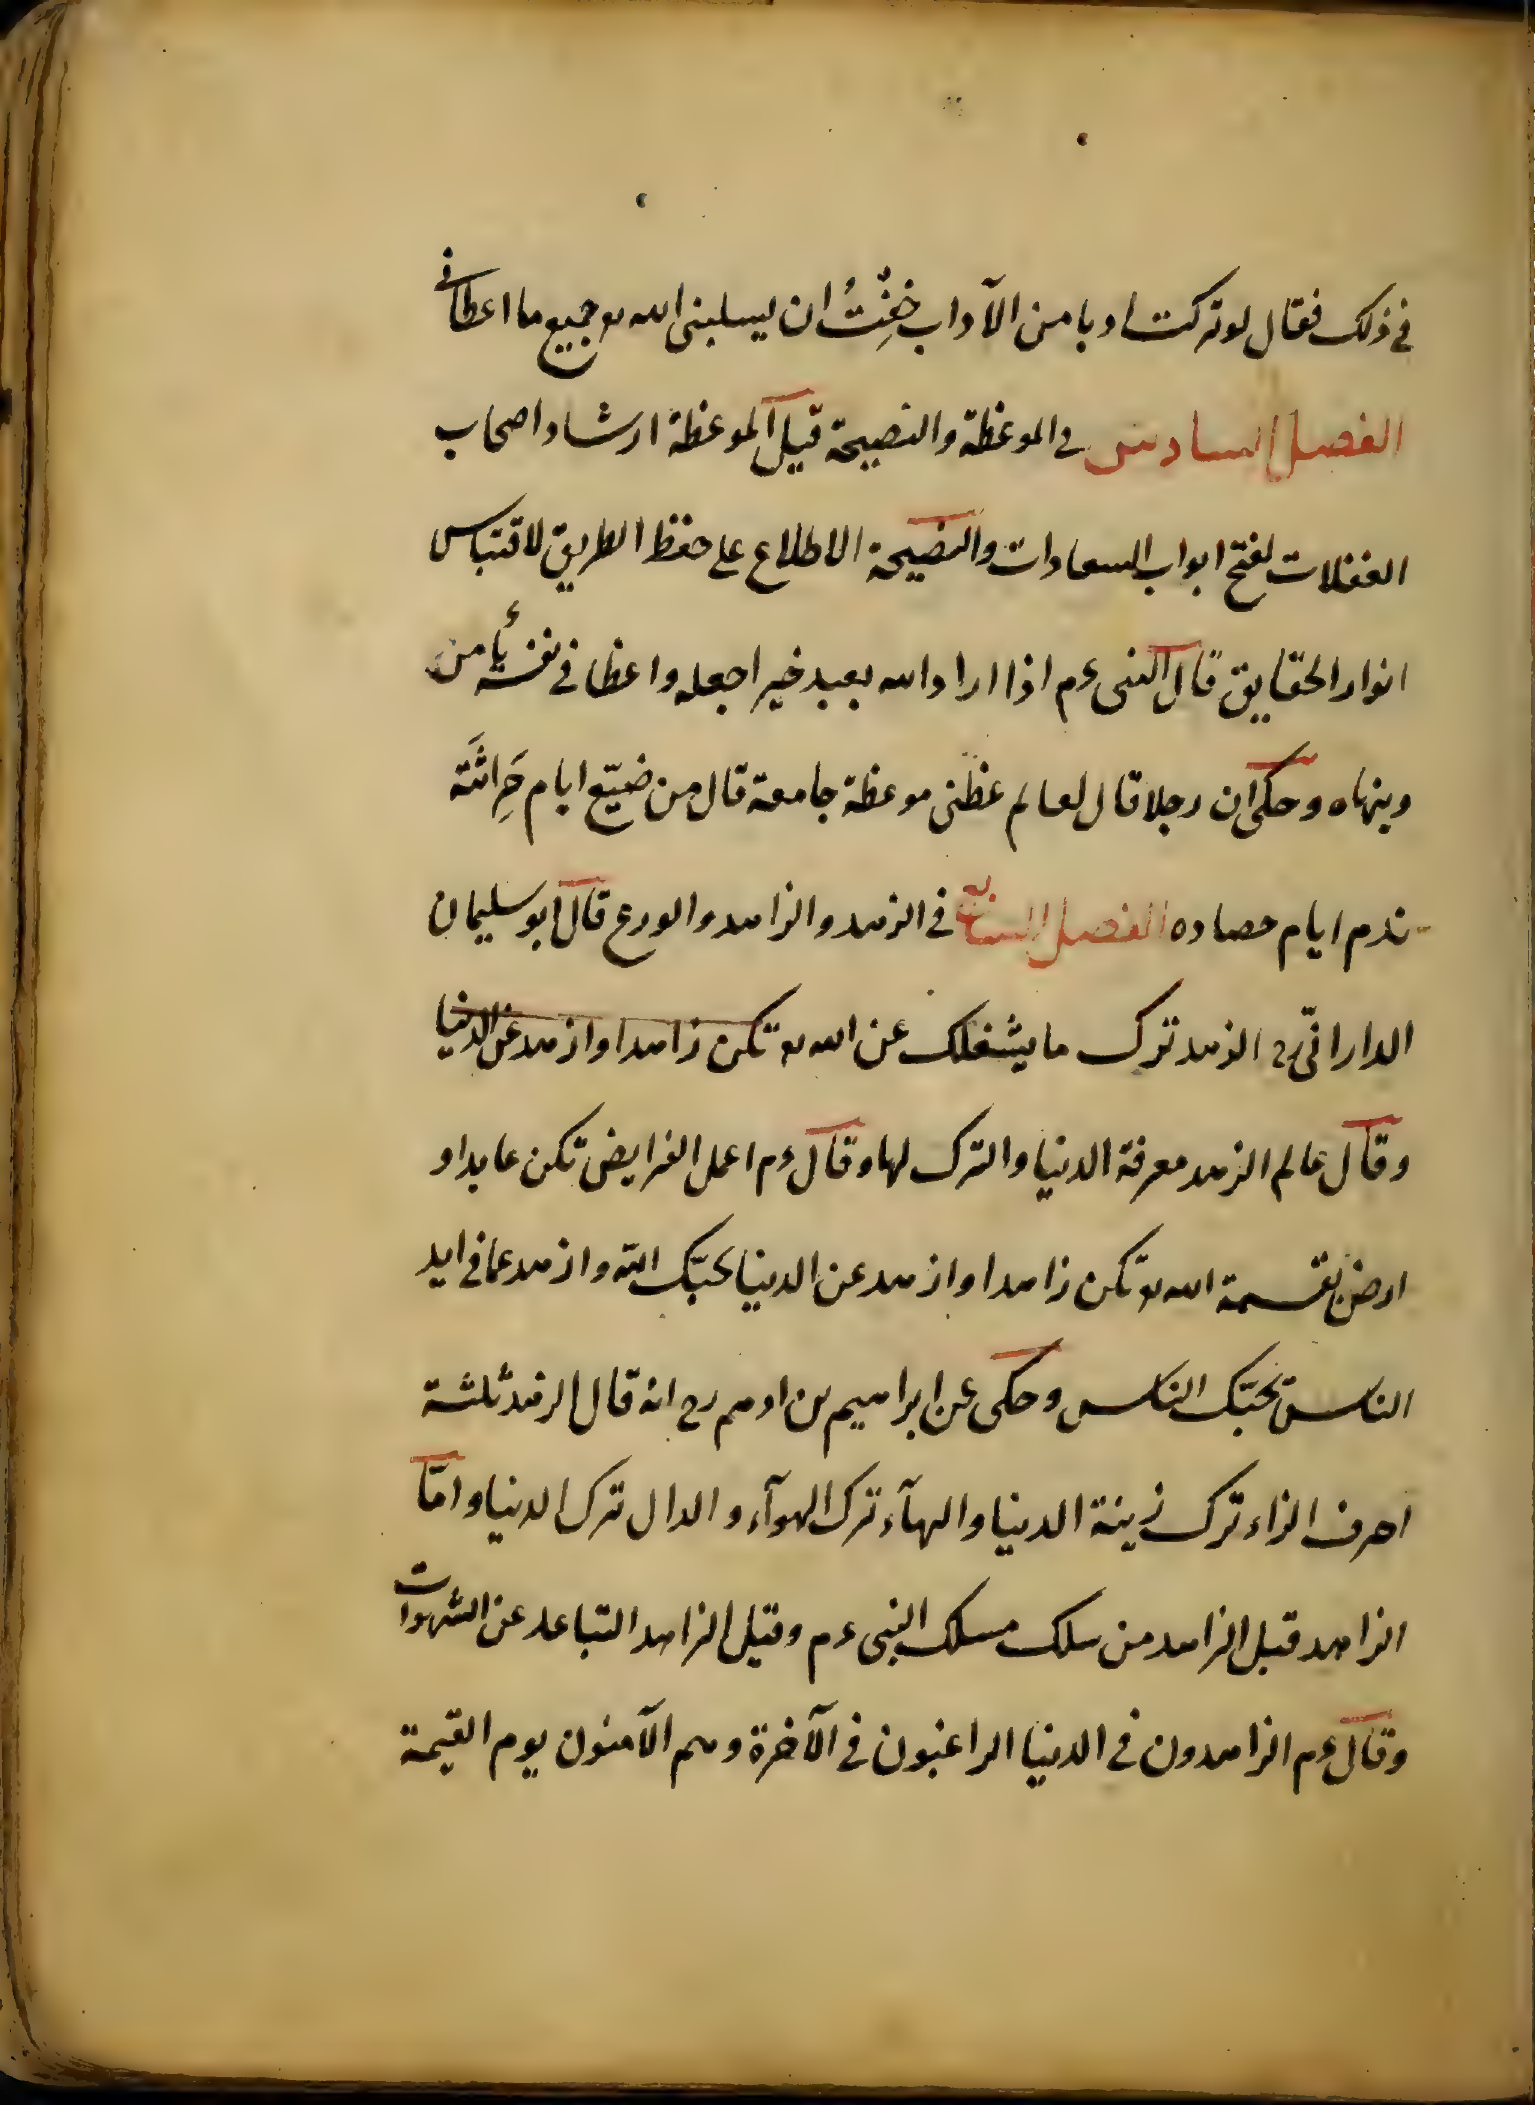 في ذلك فقال لو تركت ادبا من الآداب خِفْتُ ان يسلبنى الله تع جميع ما اعطانى
الفصل السادس فى الموعظة والنصيحة قيل الموعظة ارشاد اصحاب
الغفلات لفتح ابواب السعادات والنصيحة الاطلاع على حفظ الطريق لاقتباس
انوار الحقايق قال النبى ءم اذا اراد الله بعبد خيرا جعله واعظا فى نفسه يأمره
وينهاه وحكى ان رجلا قال لعالم عظنى موعظة جامعة قال من ضيّع ايام حَراثَتَه
ندم ايام حصاده الفصل السابع فى الزهد والزاهد والورع قال ابو سليمان
الدارانىّ رح الزهد ترك ما يشغلك عن الله تع تكن زاهدا وازهد عن الدنيا
وقال عالم الزهد معرفة الدنيا والترك لها وقال ءم اعمل الفرايض تكن عابدا و
ارض بقسمة الله تع تكن زاهدا وازهد عن الدنيا يحبّك الله وازهد عما فى ايد
الناس يحبّك الناس وحكى عن ابراهيم بن ادهم رح انه قال الزهد ثلثة
احرف الزاء ترك زينة الدنيا والهآء ترك الهوآء والدال ترك الدنيا وامّا
الزاهد قيل الزاهد من سلك مسلك النبى ءم وقيل الزاهد التباعد عن الشهوات
وقال ءم الزاهدون فى الدنيا الراغبون فى الآخرة وهم الآمنون يوم القيمة